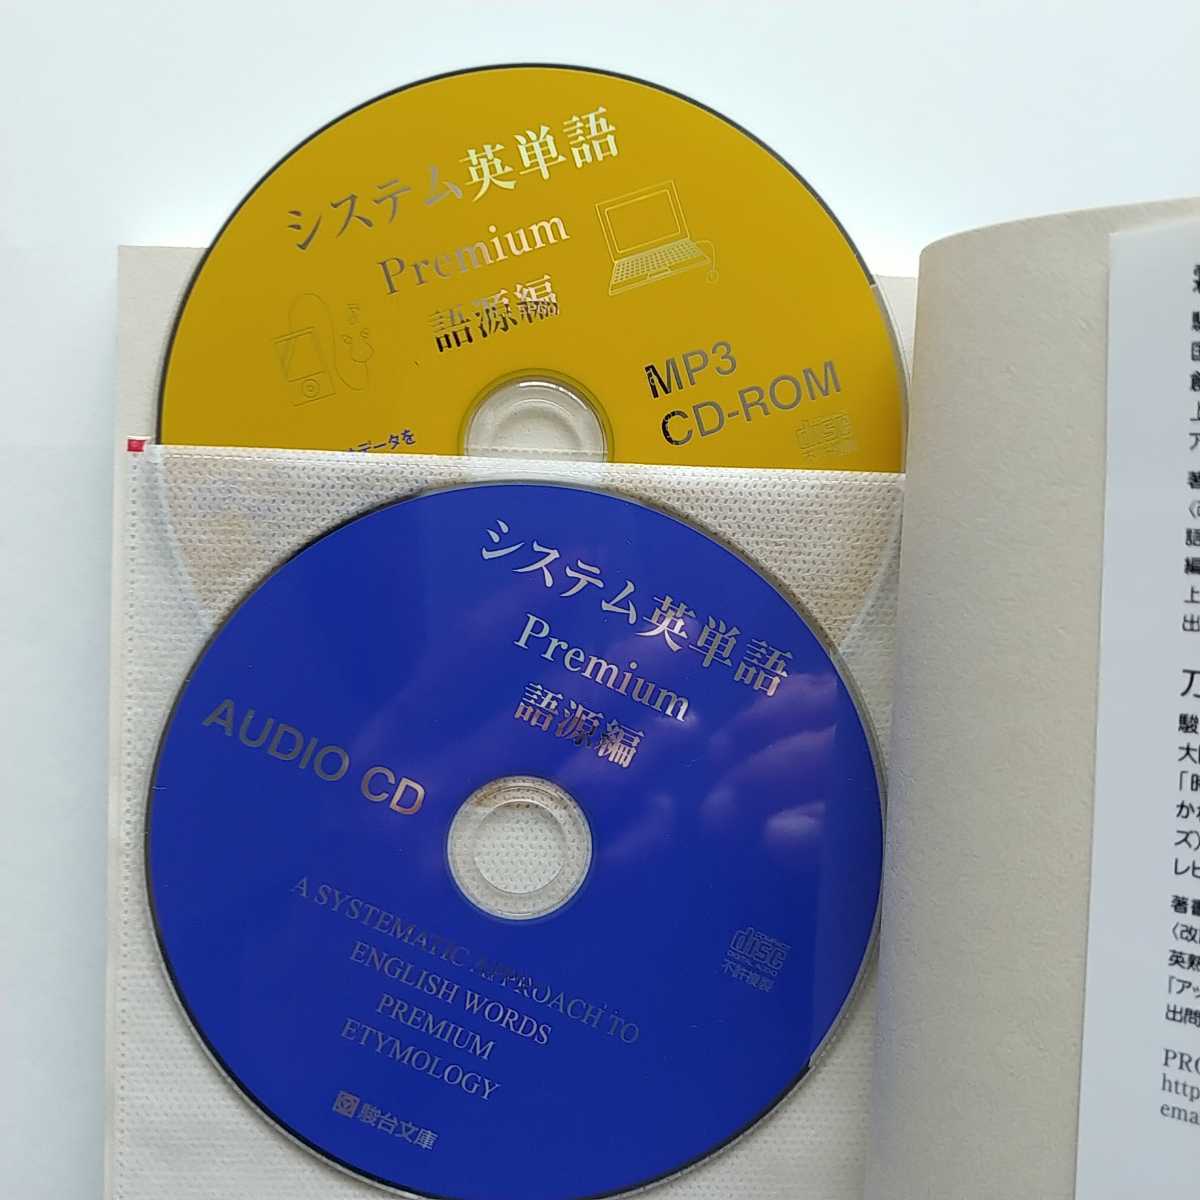 システム英単語
Premium
語源編
MP3
CD-ROM
disc
データを
システム英単語
Premium
語源編
AUDIO CD
A SYSTEMATIC APPROACH TO
ENGLISH WORDS
PREMIUM
ETYMOLOGY
disc
DIGITAL AUDIO
不許複製
駿台文庫
上
著
語
編
上
出
刀
駿
大
「時
かた
ズ)
レビ
著書
〈改
英熟
「アッ
出問
PRO
http
ema